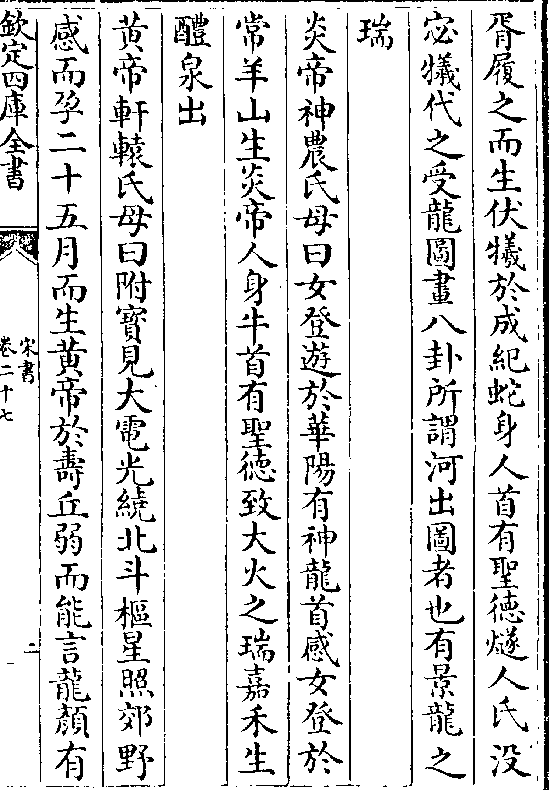 胥履之而生伏犧於成紀蛇身人首有聖德燧人氏没
宓犧代之受龍圖畫八卦所謂河出圖者也有景龍之
瑞
炎帝神農氏母曰女登遊於華陽有神龍首感女登於
常羊山生炎帝人身牛首有聖德致大火之瑞嘉禾生
醴泉出
黄帝軒轅氏母曰附寳見大電光繞北斗樞星照郊野
感而孕二十五月而生黄帝於壽丘弱而能言龍顔有
欽定四庫全書
宋書
卷二十七
二